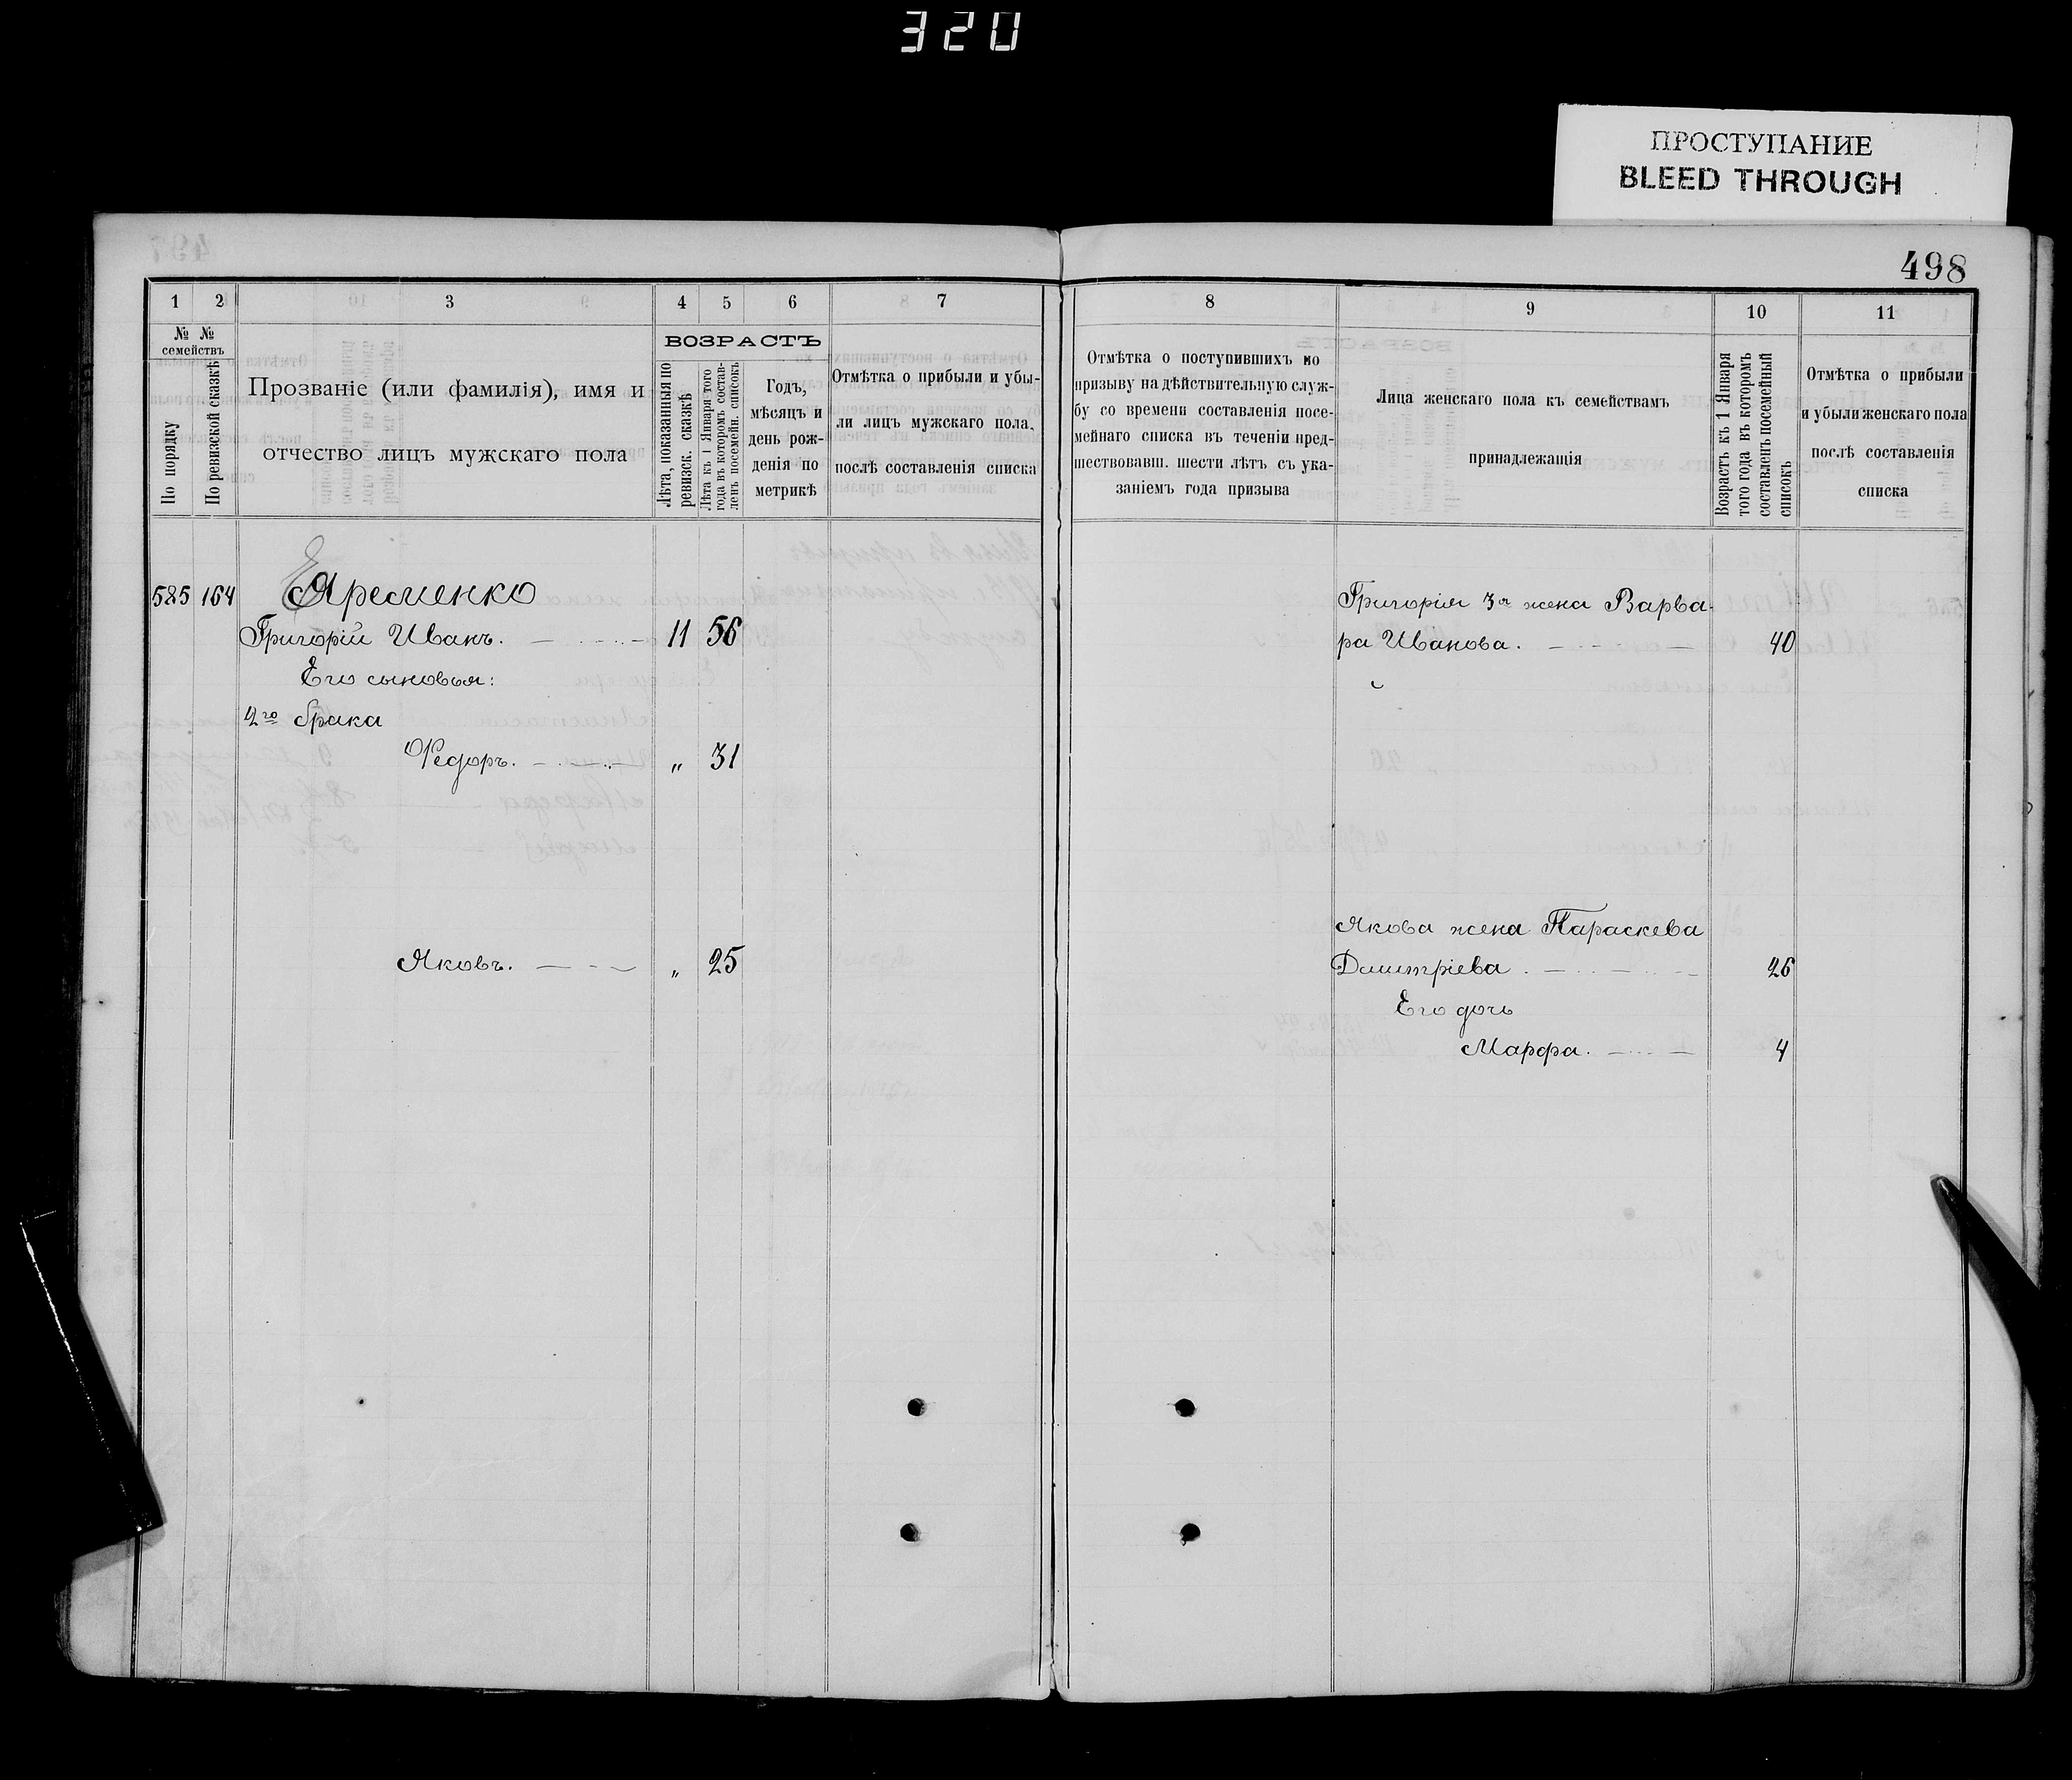 320
ПРОСТУПАНИЕ
BLEED THROUGH
498
1 2 3 4 5 6 7
№ №
семействъ
По порядку
По ревизской сказкѣ
Прозваніе (или фамилія), имя и
отчество лицъ мужскаго пола
ВОЗРАСТЪ
Лѣта, показанныя по
ревизск. сказкѣ
Лѣта къ 1 Января того
года въ которомъ состав-
ленъ посемейн. списокъ
Годъ,
мѣсяцъ и
день рож-
денія по
метрикѣ
Отмѣтка о прибыли и убы-
ли лицъ мужскаго пола,
послѣ составленія списка
585 164 Яременко
Григорій Иванъ. 11 56
Его сыновья:
2го брака
Федоръ. „ 31
Яковъ. „ 25
8 9 10 11
Отмѣтка о поступившихъ по
призыву на дѣйствительную служ-
бу со времени составленія посе-
мейнаго списка въ теченіи пред-
шествовавш. шести лѣтъ съ ука-
заніемъ года призыва
Лица женскаго пола къ семействамъ
принадлежащія
Возрастъ къ 1 Января
того года въ которомъ
составленъ посемейный
списокъ
Отмѣтка о прибыли
и убыли женскаго пола
послѣ составленія
списка
Григорія 3я жена Варва-
ра Иванова. 40
Якова жена Параскева
Дмитріева. 26
Его дочь
Марфа. 4